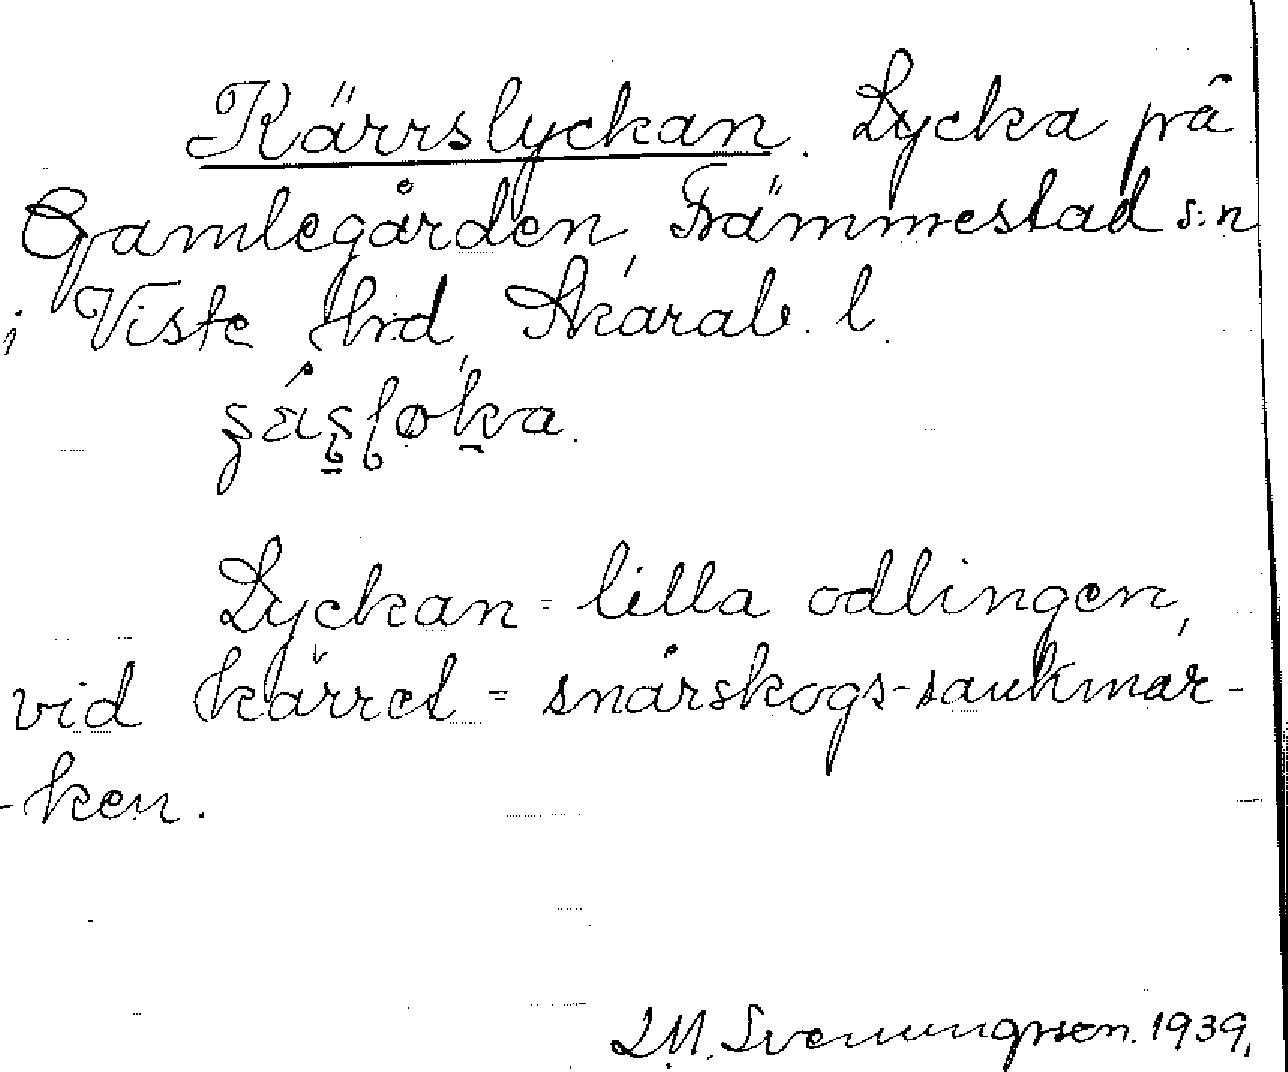 Kärrslyckan. Lycka på
Gamlegården, Främmestad s:n
i Viste hrd, Skarab. l.
Lyckan = lilla odlingen,
vid kärret = snårskogs-sankmar-
-ken.
L.M. Svenungsson. 1939.